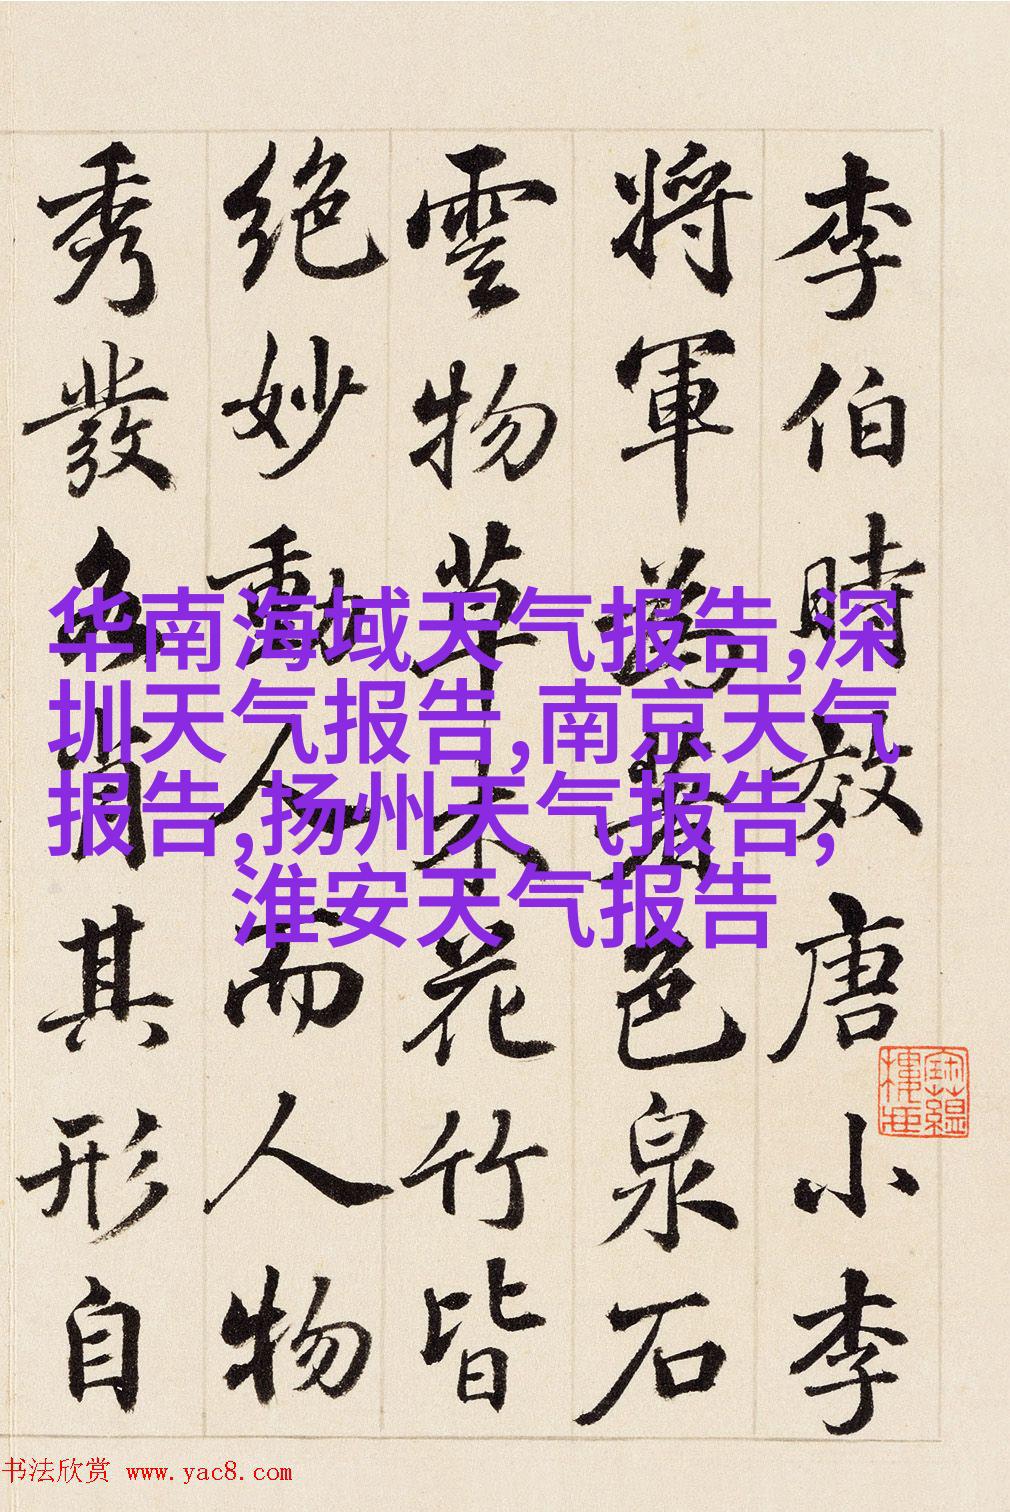 李伯時效唐小李
將軍為著色泉石
雲物草木花竹皆
絕妙動人而人物
秀發各肖其形自
华南海域天气报告,深
圳天气报告,南京天气
报告,扬州天气报告,
淮安天气报告
寶蘊樓
书法欣赏 www.yac8.com